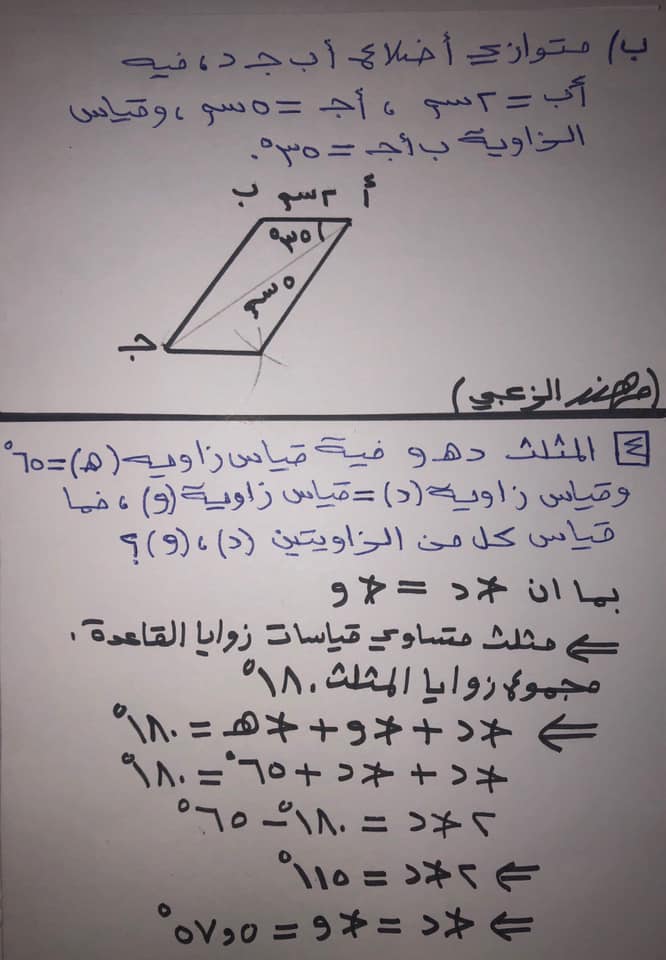 ب) متوازي أضلاع أ ب جـ د، فيه
أب = ٢سم ، أجـ = ٥سم ، وقياس
الزاوية ب أجـ = ٣٥°.
ب ٢سم أ
٣٥°
٥سم
جـ
(مهند الزعبي)
٤ المثلث د هـ و فية قياس زاويه (هـ) = ٦٥°
وقياس زاوية (د) = قياس زاوية (و) ، فما
قياس كل من الزاويتين (د) ، (و) ؟
بما ان ∢د = ∢و
⇐ مثلث متساوي قياسات زوايا القاعدة .
مجموع زوايا المثلث ١٨٠°
⇐ ∢د + ∢و + ∢هـ = ١٨٠°
∢د + ∢د + ٦٥° = ١٨٠°
٢∢د = ١٨٠° − ٦٥°
⇐ ٢∢د = ١١٥°
⇐ ∢د = ∢و = ٥٧,٥°